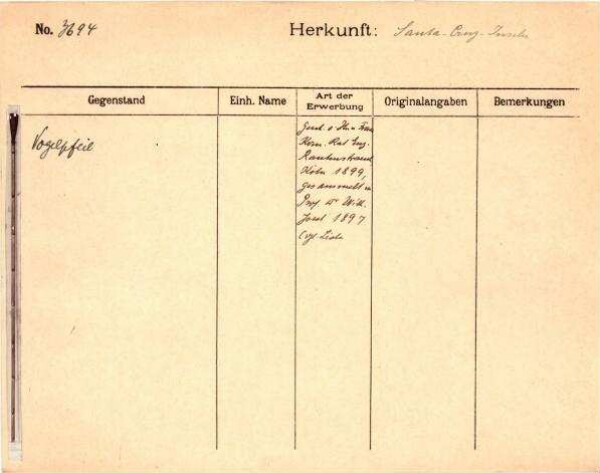 No. 3694 Herkunft: Santa-Cruz-Inseln
Gegenstand Einh. Name Art der Erwerbung Originalangaben Bemerkungen
Vogelpfeil
Gesch. v. H. u. Frau
Kom. Rat Eug.
Rautenstrauch
Köln 1899,
gesammelt v.
Prof. Dr Wilh.
Joest 1897